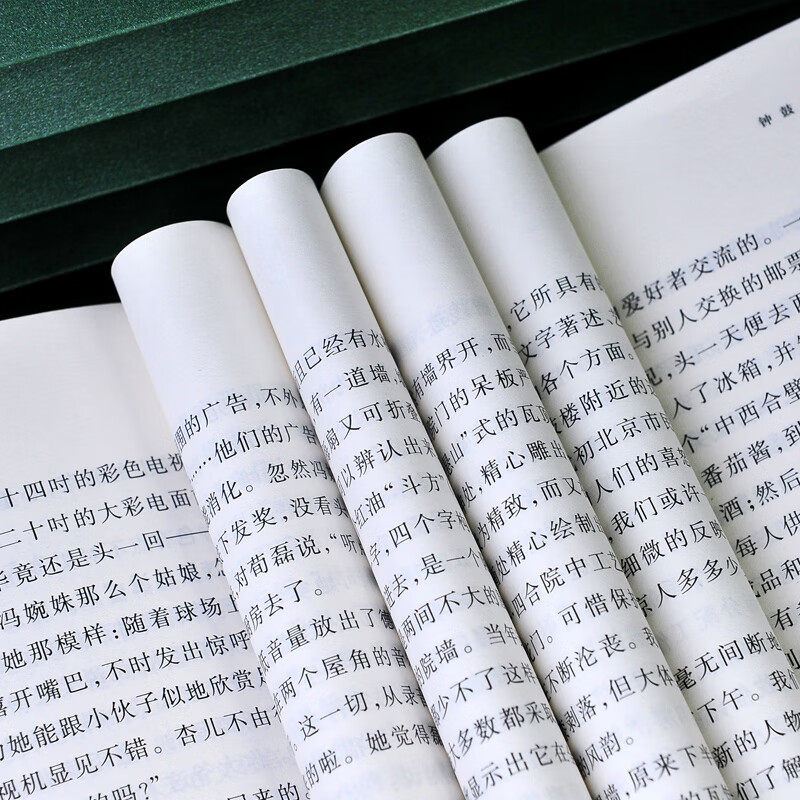 十四吋的彩色电视
二十吋的大彩电面
毕竟还是头一回——
冯婉姝那么个姑娘,
她那模样:随着球场上
喜开嘴巴,不时发出惊呼
她能跟小伙子似地欣赏
视机显见不错。杏儿不由
的吗?”
回来的
的广告,不外
……他们的广告
消化。忽然冯
下发奖,没看头
对荀磊说,“听
房去了。
音量放出了
两个屋角的音
。这一切,从录
的啦。她觉得
且已经有水
有一道墙,
扇又可折
以辨认出来
红油“斗方
字,四个字
去,是一个
两间不大的
院墙。当年
少不了这样
大多数都采取
显示出它在
有墙界开,而
院门的呆板严
山”式的瓦顶
处,精心雕出
为精致,而又
处精心绘制
四合院中工艺
门。可惜保
不断沦丧。我
剥落,但大体
风韵。
墙,原来下半
的瓦
,它所具有
文字著述、
各个方面,
楼附近的
初北京市
人们的喜怒
我们或许
细微的反映
京人多多少
毫无间断地
下午。我们
新的人物
们了解
钟鼓
爱好者交流的。—
与别人交换的邮票
见,头一天便去西
人了冰箱,并
个“中西合璧
番茄酱,到
酒;然后
每人供
品和